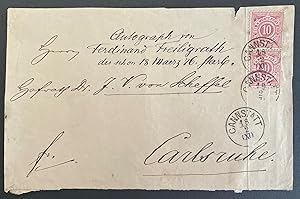 Autograph von
Herrn Ferdinand Freiligrath
des schon 18 Maerz 76 starb.
Hofrath Dr. J. V. von Scheffel
fr.
Carlsruhe.
10
CANNSTATT
CANNSTATT
CANNSTATT